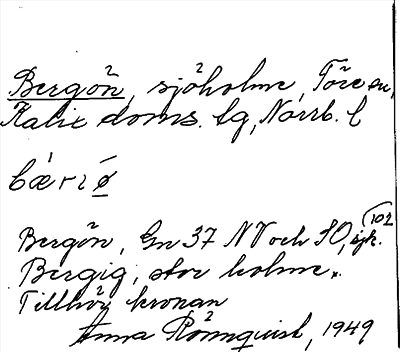 Bergön, sjöholme, Töre sn,
Kalix doms. lg, Norrb. l
bærıø
Bergön, Gn 37 NV och SO, sjk. 102
Bergig, stor holme.
Tillhör kronan
Anna Rönnquist, 1949